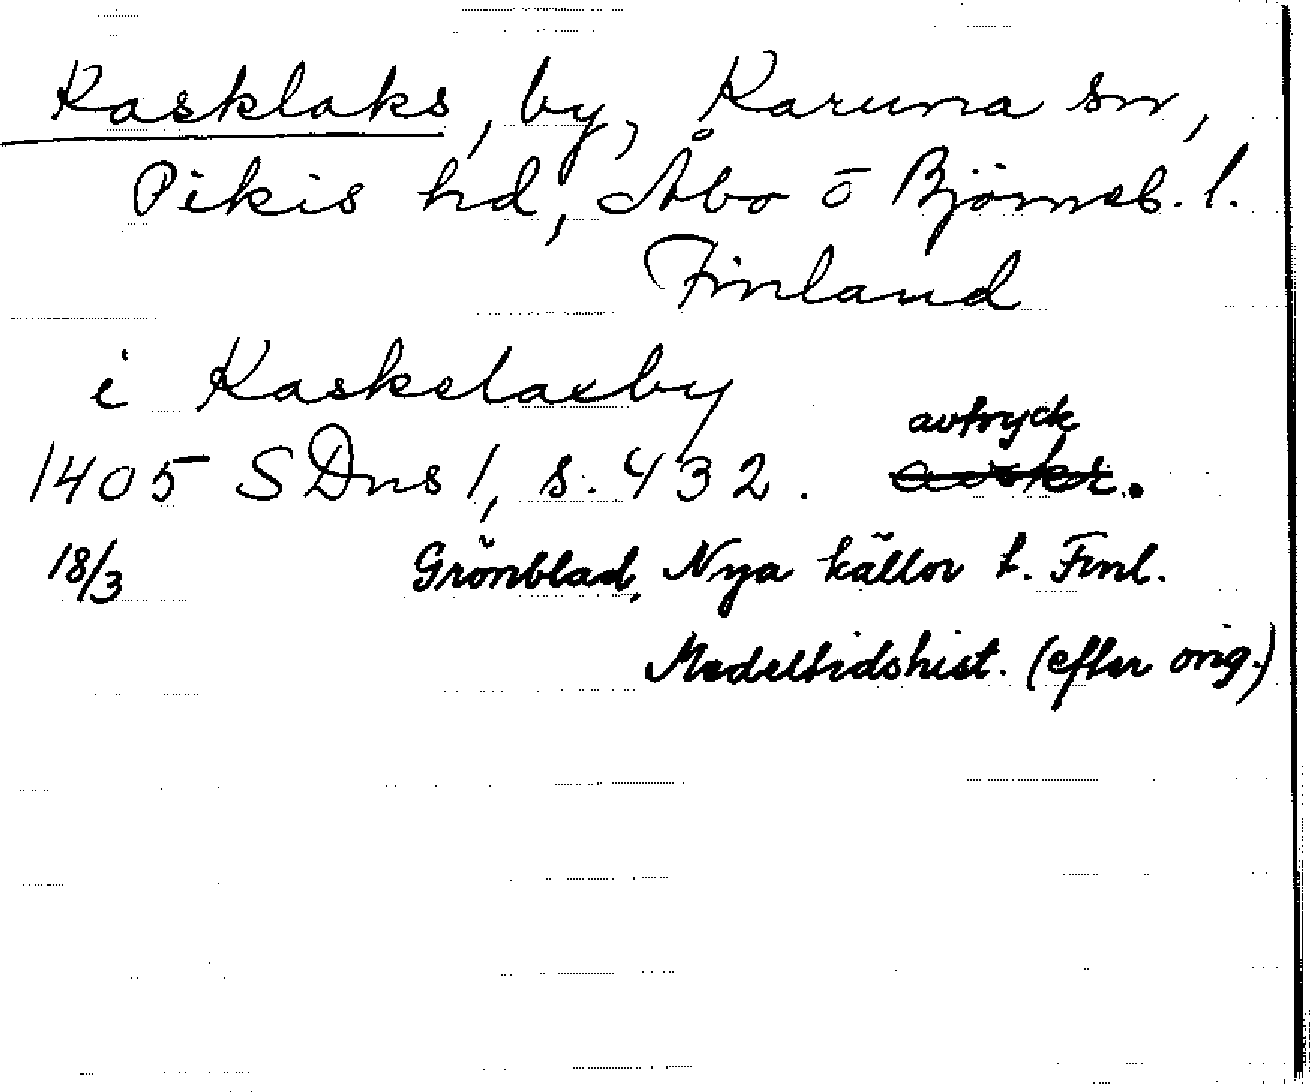 Kasklaks, by, Karuna sn,
Pikis hd, Åbo o Björneb. l.
Finland
i Kaskelaxby
avtryck
1405 SDns 1, s. 432. avskr.
18/3 Grönblad, Nya källor t. Finl.
Medeltidshist. (efter orig.)